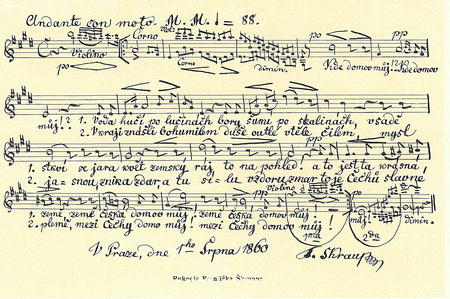 Andante con moto. M. M. ♩ = 88.
Corno
po
pp
Violino
Corno
po
dimin.
Kde domov můj, Kde domov
můj! 1. Voda hučí po lučinách bory šumí po skalinách, v sadě
2. V kraji znáš-li Bohumilém duše outlé v těle čilém mysl
1. stkví se jara květ zemský ráj to na pohled! a to jest ta krásná
2. ja= snou, znik a zdar, a tu sí= lu vzdoru zmar to je Čechů slavné
Violino
pp
pp
1. země, země česká domov můj, země česká domov můj!
můj!
dimin.
2. plémě, mezi Čechy domov můj! mezi Čechy domov můj!
1ma
2da
V Praze, dne 1ho Srpna 1860
F. Skraup